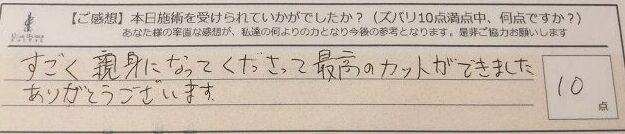 【ご感想】本日施術を受けられていかがでしたか？（ズバリ10点満点中、何点ですか？）
あなた様の率直な感想が、私達の何よりの力となり今後の参考となります。是非ご協力お願いします
すごく親身になってくださって最高のカットができました
ありがとうございます。
10
点